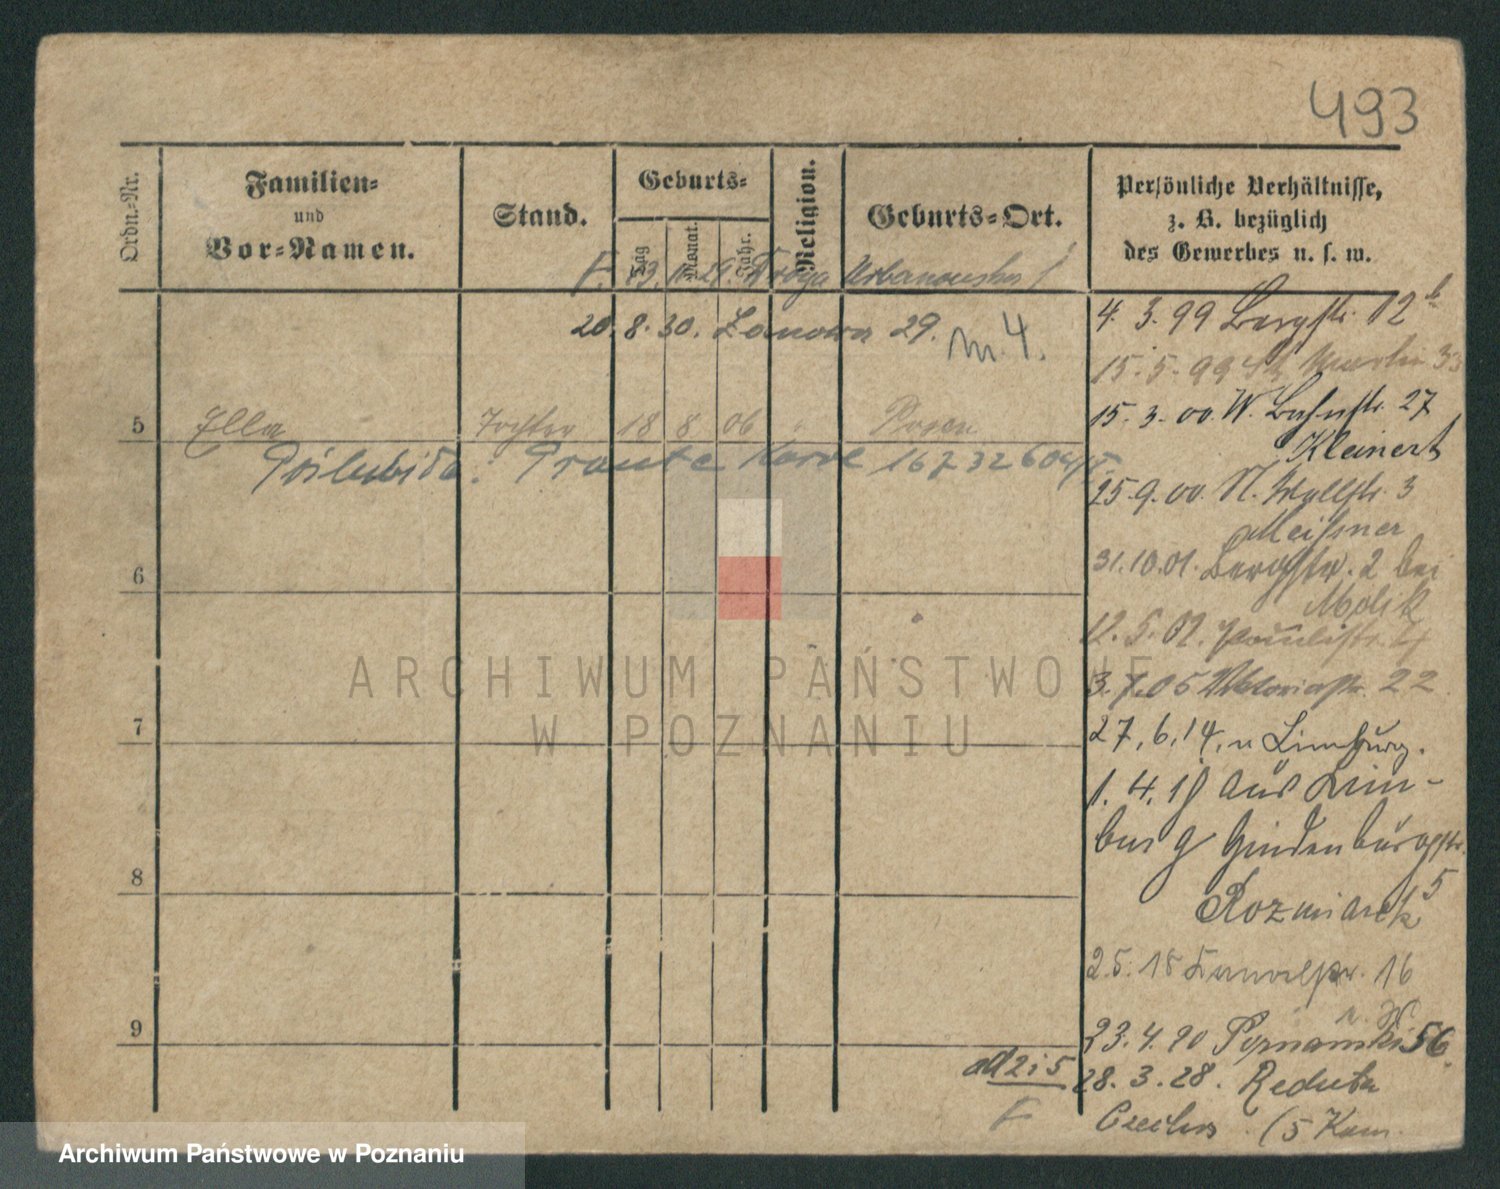 493
Ordn.-Nr.
Familien-
und
Vor-Namen.
Stand.
Geburts-
Tag
Monat.
Jahr.
Religion.
Geburts-Ort.
Persönliche Verhältnisse,
z. B. bezüglich
des Gewerbes u. s. w.
F. 13. 11. 29. Droga Urbanowska 1
20. 8. 30. Łanowa 29. m. 4.
5 Ella Tochter 18 8 06 " Posen
Poślubiła: Karol
6
7
8
9
4. 3. 99 Bergstr. 12 b
15. 5. 99 St Martin 33
15. 3. 00. W. Bahnstr. 27
Kleinert
25. 9. 00. N. 3
Meißner
31. 10. 01. Bergstr. 2 bei
Molik
12. 5. 02. Paulistr. 4
3. 7. 05 Viktoriastr. 22
27. 6. 14. n Limburg.
1. 4. 18 aus Lim-
burg Hindenburgstr.
Rozmiarek 5
2. 5. 18 Kanalstr. 16
23. 4. 20 Poznańska 56
ad 2 i 5 28. 3. 28. Reduta
F Czechos (5 Kam.
ARCHIWUM PAŃSTWOWE
W POZNANIU
Archiwum Państwowe w Poznaniu